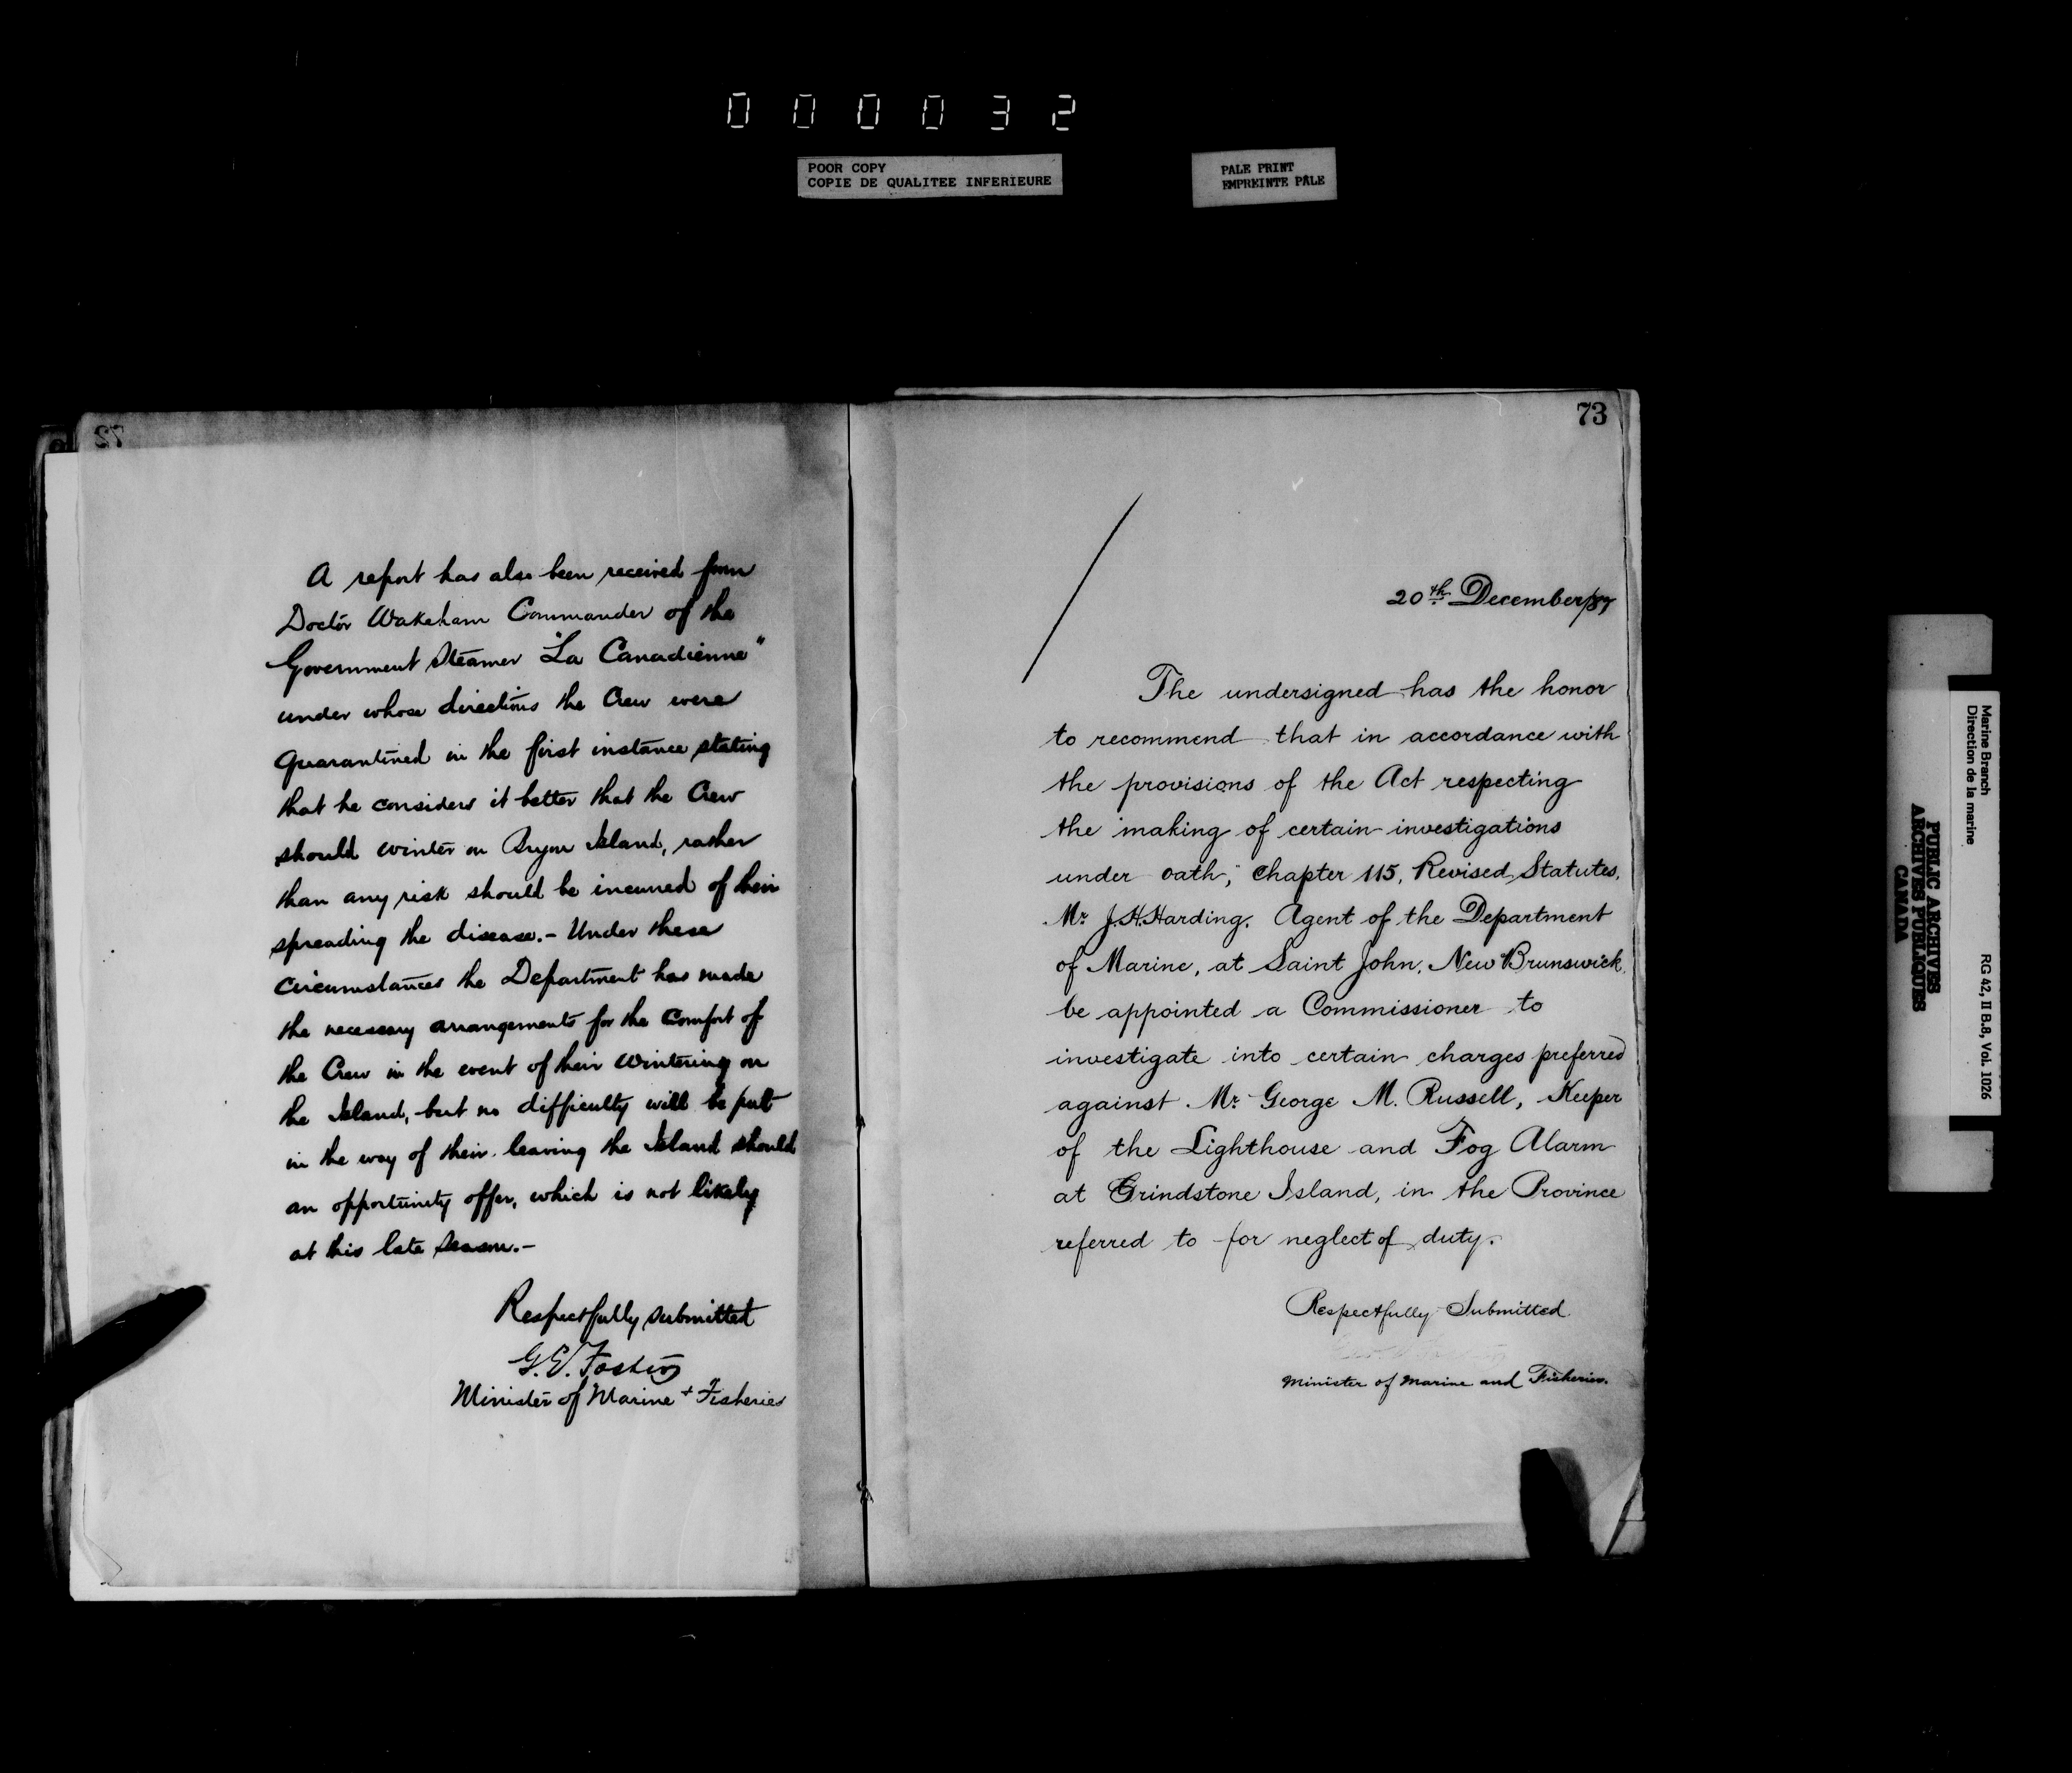 000032
POOR COPY
COPIE DE QUALITEE INFERIEURE
PALE PRINT
EMPREINTE PÂLE
72
A report has also been received from
Doctor Wakeham Commander of the
Government Steamer "La Canadienne"
under whose directions the Crew were
Quarantined in the first instance stating
that he considers it better that the Crew
should winter on Bryon Island, rather
than any risk should be incurred of their
spreading the disease.- Under these
circumstances the Department has made
the necessary arrangements for the comfort of
the Crew in the event of their wintering on
the Island, but no difficulty will be put
in the way of their leaving the Island should
an opportunity offer, which is not likely
at this late season.-
Respectfully submitted
G. E. Foster
Minister of Marine + Fisheries
73
20th December/87
The undersigned has the honor
to recommend that in accordance with
the provisions of the Act respecting
the making of certain investigations
under oath, Chapter 115, Revised Statutes,
Mr J.H. Harding. Agent of the Department
of Marine, at Saint John, New Brunswick,
be appointed a Commissioner to
investigate into certain charges preferred
against Mr George M. Russell, Keeper
of the Lighthouse and Fog Alarm
at Grindstone Island, in the Province
referred to for neglect of duty.
Respectfully Submitted
Minister of Marine and Fisheries.
Marine Branch
Direction de la marine
RG 42, II B.8, Vol. 1026
PUBLIC ARCHIVES
ARCHIVES PUBLIQUES
CANADA